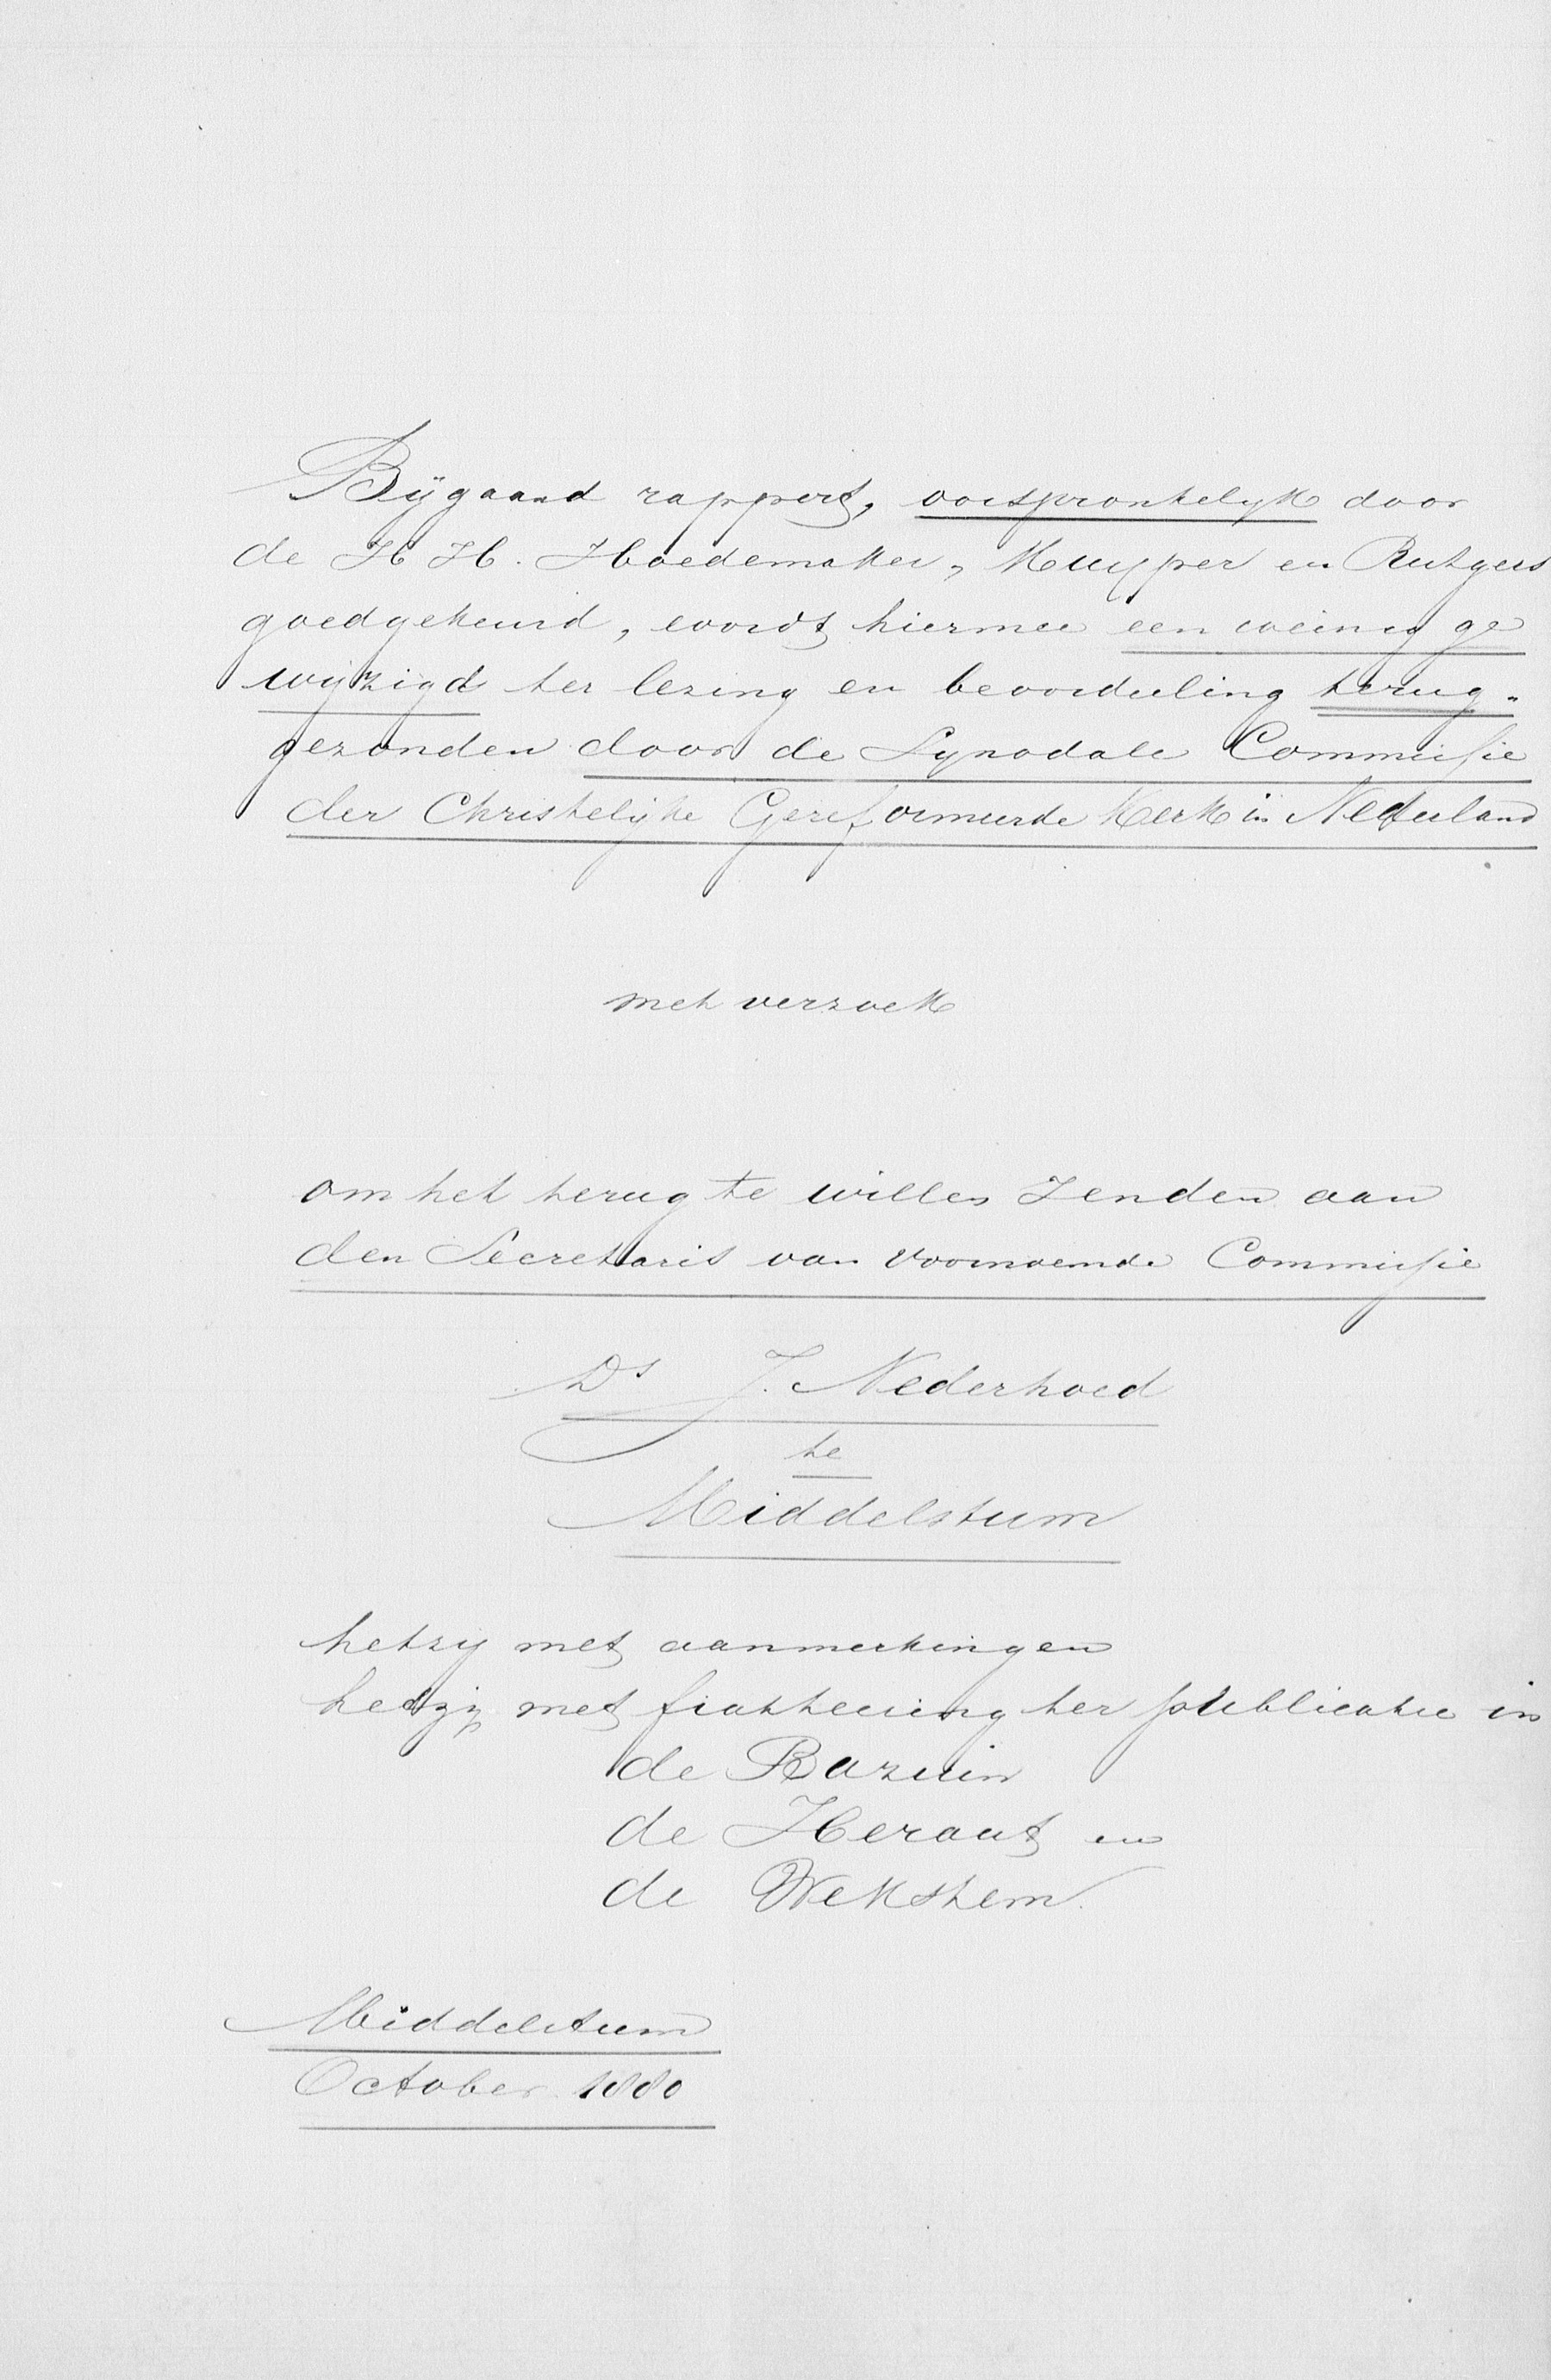 Bijgaand rapport, oorspronkelijk door
de H H. Hoedemaker, Kuyper en Rutgers
goedgekeurd, wordt hiermee een weinig ge
wijzigd ter lezing en beoordeeling terug-
gezonden door de Synodale Commissie
der Christelijke Gereformeerde Kerk in Nederland
met verzoek
om het terug te willen zenden aan
den Secretaris van voornoemde Commissie
Ds J. Nederhoed
te
Middelstum
hetzij met aanmerkingen
hetzij met fiatteering ter publicatie in
de Bazuin
de Heraut en
de Wekstem.
Middelstum
October 1880